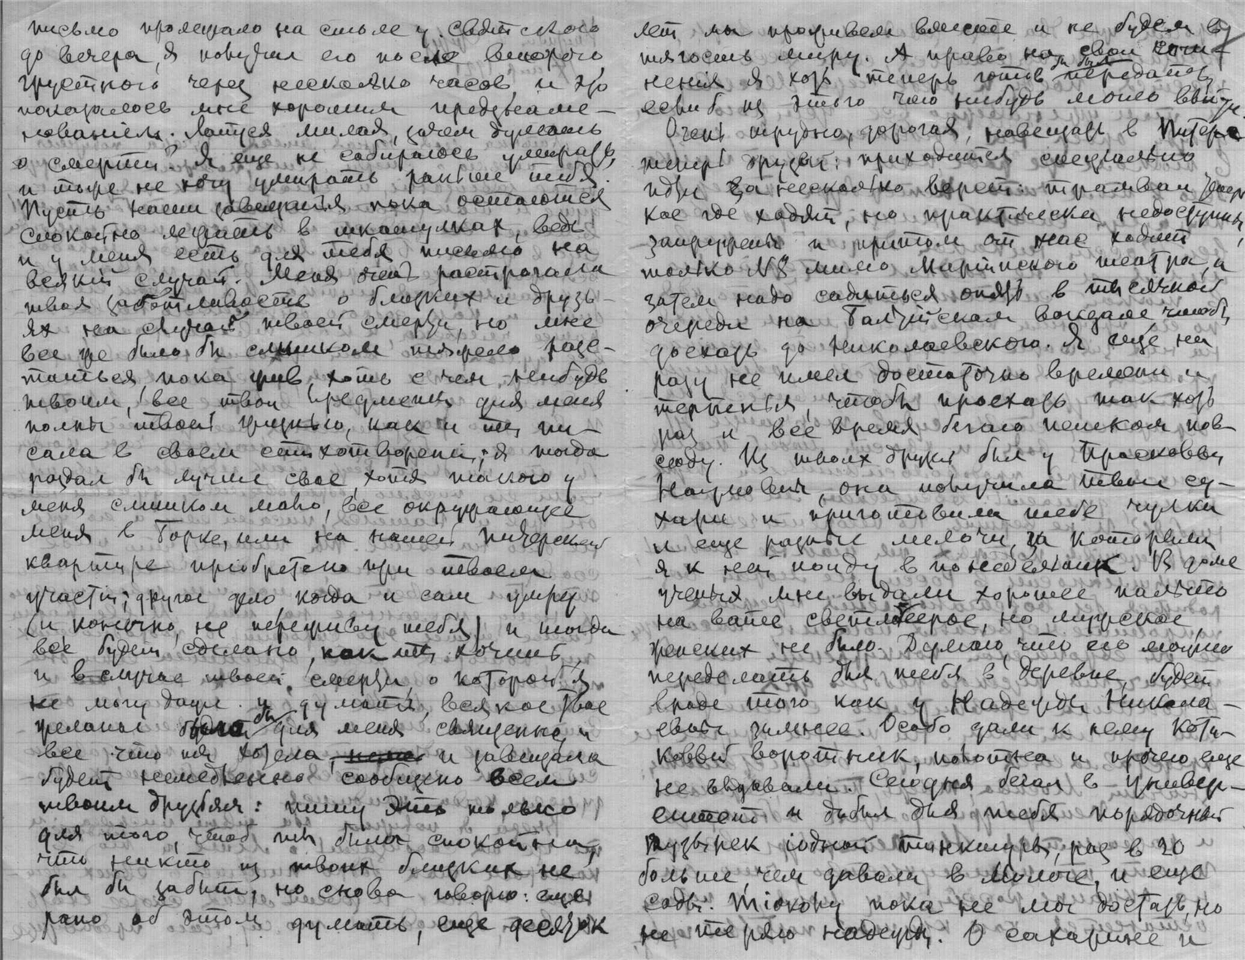 письмо пролежало на столе у
до вечера, я получил его после второго,
грустного через несколько часов, и это
показалось мне хорошим предзнаме-
нованием. милая, зачем думать
о смерти? Я еще не собираюсь умирать,
и тоже не хочу умирать раньше тебя.
Пусть наши завещания пока остаются
спокойно лежать в шкатулках, ведь
и у меня есть для тебя письмо на
всякий случай. Меня очень растрогала
твоя заботливость о близких и друзь-
ях на случай твоей смерти, но мне
все же было бы слишком тяжело расс-
таться пока жив, хоть с чем нибудь
твоим, все твои предметы для меня
полны твоей жизнью, как и ты пи-
сала в своем стихотворении; я тогда
раздал бы лучше свое, хотя такого у
меня слишком мало, все окружающее
меня в Борке, или на нашей питерской
квартире приобретено при твоем
участии; другое дело когда и сам умру
(и конечно, не переживу тебя) и тогда
все будет сделано, как ты хочешь,
и в случае твоей смерти, о которой я
не могу даже и думать, всякое твое
желание было бы для меня священно, и
все что ты хотела, и завещала
будет немедленно сообщено всем
твоим друзьям: пишу это только
для того, чтоб ты была спокойна,
что никто из твоих близких не
был бы забыт, но снова говорю: еще
рано об этом думать, еще десяток
лет мы проживем вместе и не будем в
тягость миру. А право на свои сочи-
нения я хоть теперь готов был передать,
если б из этого что нибудь могло выйти.
Очень трудно, дорогая, навещать в Питере
теперь друзей: приходится специально
идти за несколько верст: трамваи
кое где ходят, но практически недоступны,
запружены и притом от нас ходит
только №8 мимо Мариинского театра, и
затем надо садиться опять в тысячной
очереди на Балтийском вокзале чтоб
доехать до Николаевского. Я еще ни
разу не имел достаточно времени и
терпенья, чтобы проехать так хоть
раз и все время бегаю пешком пов-
сюду. Из твоих друзей был у Прасковьи
Наумовны, она получила твои су-
хари и приготовила тебе чулки
и еще разные мелочи, за которыми
я к ней пойду в понедельник. В доме
ученых мне выдали хорошее пальто
на вате светлосерое, но мужское,
женских не было. Думаю, что его можно
переделать для тебя в деревне, будет
вроде того как у Надежды Никола-
евны зимнее. Особо дали к нему коти-
ковый воротник, полотна и прочего еще
не выдавали. Сегодня бегал в Универ-
ситет и добыл для тебя порядочный
пузырек иодной тинктуры, раз в 20
больше, чем давали в Мологе, и еще
соды. Тиоколу пока не мог достать, но
не теряю надежды. О сахарине и